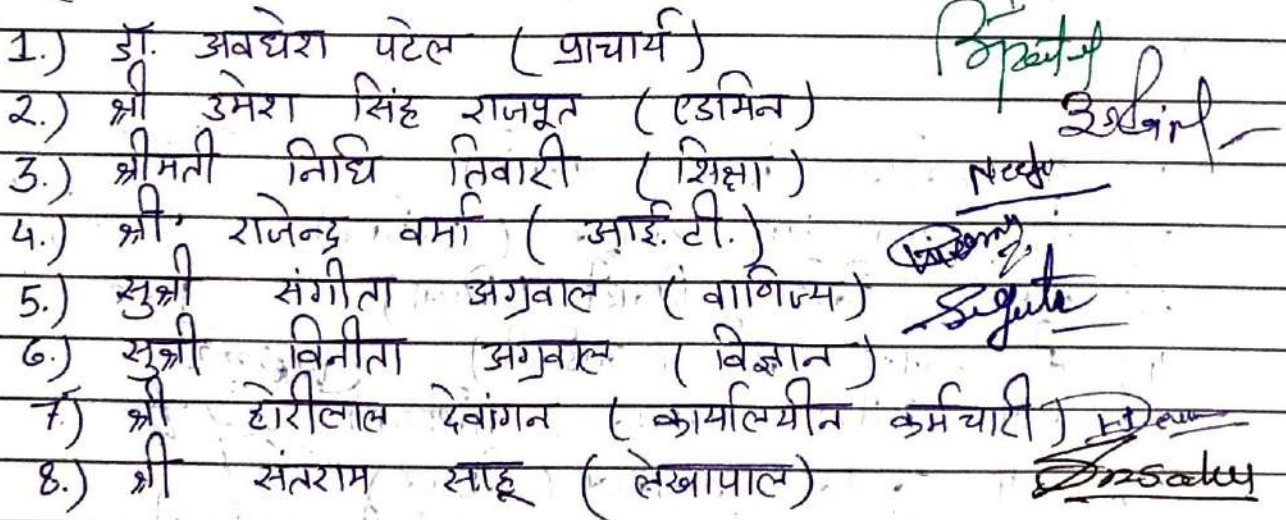 1.) डॉ. अवधेश पटेल ( प्राचार्य )
2.) श्री उमेश सिंह राजपूत ( एडमिन )
3.) श्रीमती निधि तिवारी ( शिक्षा )
4.) श्री राजेन्द्र वर्मा ( आई. टी. )
5.) सुश्री संगीता अग्रवाल ( वाणिज्य )
6.) सुश्री विनीता अग्रवाल ( विज्ञान )
7.) श्री होरीलाल देवांगन ( कार्यालयीन कर्मचारी )
8.) श्री संतराम साहू ( लेखापाल )